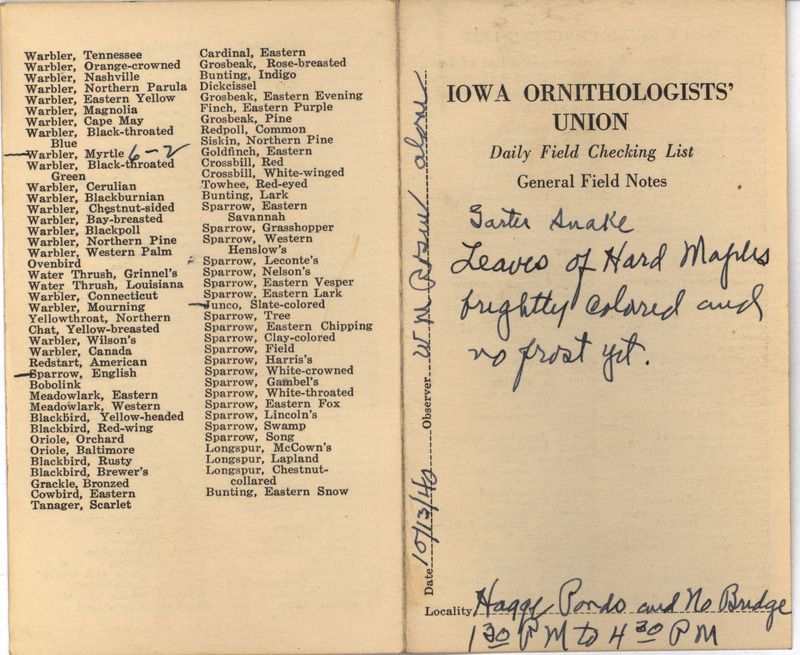 Warbler, Tennessee
Warbler, Orange-crowned
Warbler, Nashville
Warbler, Northern Parula
Warbler, Eastern Yellow
Warbler, Magnolia
Warbler, Cape May
Warbler, Black-throated
Blue
Warbler, Myrtle 6-2
Warbler, Black-throated
Green
Warbler, Cerulian
Warbler, Blackburnian
Warbler, Chestnut-sided
Warbler, Bay-breasted
Warbler, Blackpoll
Warbler, Northern Pine
Warbler, Western Palm
Ovenbird
Water Thrush, Grinnel's
Water Thrush, Louisiana
Warbler, Connecticut
Warbler, Mourning
Yellowthroat, Northern
Chat, Yellow-breasted
Warbler, Wilson's
Warbler, Canada
Redstart, American
Sparrow, English
Bobolink
Meadowlark, Eastern
Meadowlark, Western
Blackbird, Yellow-headed
Blackbird, Red-wing
Oriole, Orchard
Oriole, Baltimore
Blackbird, Rusty
Blackbird, Brewer's
Grackle, Bronzed
Cowbird, Eastern
Tanager, Scarlet
Cardinal, Eastern
Grosbeak, Rose-breasted
Bunting, Indigo
Dickcissel
Grosbeak, Eastern Evening
Finch, Eastern Purple
Grosbeak, Pine
Redpoll, Common
Siskin, Northern Pine
Goldfinch, Eastern
Crossbill, Red
Crossbill, White-winged
Towhee, Red-eyed
Bunting, Lark
Sparrow, Eastern
Savannah
Sparrow, Grasshopper
Sparrow, Western
Henslow's
Sparrow, Leconte's
Sparrow, Nelson's
Sparrow, Eastern Vesper
Sparrow, Eastern Lark
Junco, Slate-colored
Sparrow, Tree
Sparrow, Eastern Chipping
Sparrow, Clay-colored
Sparrow, Field
Sparrow, Harris's
Sparrow, White-crowned
Sparrow, Gambel's
Sparrow, White-throated
Sparrow, Eastern Fox
Sparrow, Lincoln's
Sparrow, Swamp
Sparrow, Song
Longspur, McCown's
Longspur, Lapland
Longspur, Chestnut-
collared
Bunting, Eastern Snow
Date 10/13/40 Observer W M Rosen alone
IOWA ORNITHOLOGISTS'
UNION
Daily Field Checking List
General Field Notes
Garter Snake
Leaves of Hard Maples
brightly colored and
no frost yet.
Locality Ponds and No Bridge
1 30 PM to 4 30 PM